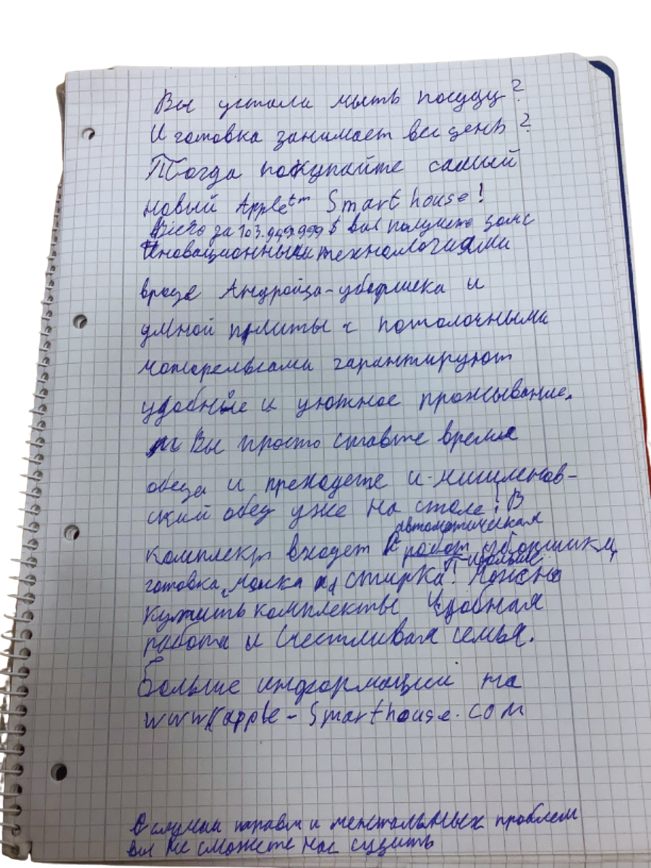 Вы устали мыть посуду?
И готовка занимает весь день?
Тогда покупайте самый
новый Apple™ Smart house!
Всего за 103.949.999 $ вы получите
Иновационными технологиями
вроде Андройда-уборщика и
умной плиты с потолочными
гарантируют
удобные и уютное проживание.
Вы просто ставте время
обеда и преходете и мишленов-
ский обед уже на столе! В
автоматическая
комплект входет робот уборщик,
готовка, мойка и стирка! Можно
купить комплекты Удобная
работа и Счестливая семья.
Больше информации на
www.apple-Smarthouse.com
В случаи травм и ментальных проблем
вы не сможете нас судить